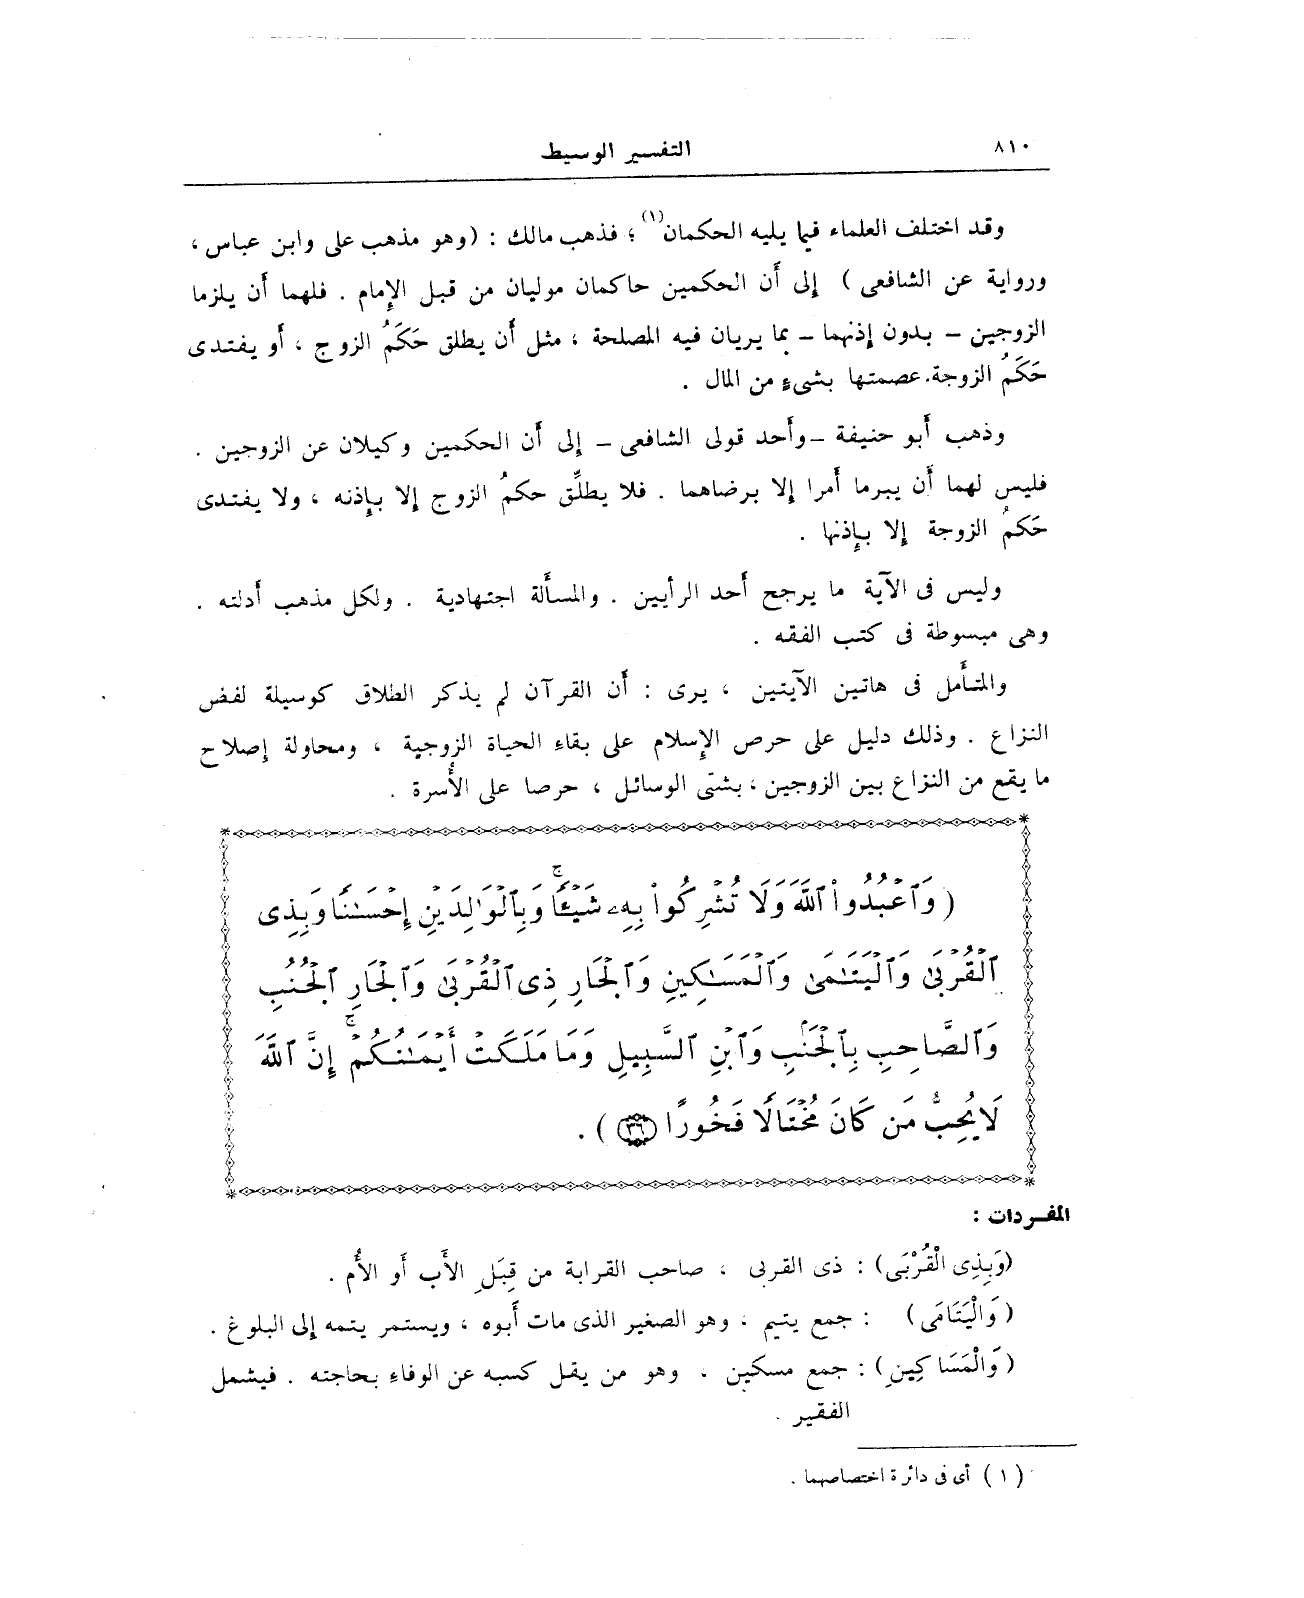 ٨١٠
التفسير الوسيط
وقد اختلف العلماء فيما يليه الحكمان(١) ؛ فذهب مالك : (وهو مذهب على وابن عباس ،
ورواية عن الشافعى ) إلى أن الحكمين حاكمان موليان من قبل الإمام . فلهما أن يلزما
الزوجين – بدون إذنهما – بما يريان فيه المصلحة ، مثل أن يطلق حَكَمُ الزوج ، أو يفتدى
حَكَمُ الزوجة عصمتها بشىءٍ من المال .
وذهب أبو حنيفة – وأحد قولى الشافعى – إلى أن الحكمين وكيلان عن الزوجين .
فليس لهما أن يبرما أمرا إلا برضاهما . فلا يطلِّق حكمُ الزوج إلا بإذنه ، ولا يفتدى
حَكمُ الزوجة إلا بإذنها .
وليس فى الآية ما يرجح أحد الرأيين . والمسألة اجتهادية . ولكل مذهب أدلته .
وهى مبسوطة فى كتب الفقه .
والمتأمل فى هاتين الآيتين ، يرى : أن القرآن لم يذكر الطلاق كوسيلة لفض
النزاع . وذلك دليل على حرص الإسلام على بقاء الحياة الزوجية ، ومحاولة إصلاح
ما يقع من النزاع بين الزوجين ، بشتى الوسائل ، حرصا على الأُسرة .
( وَٱعۡبُدُواْ ٱللَّهَ وَلَا تُشۡرِكُواْ بِهِۦ شَيۡـًٔاۖ وَبِٱلۡوَٰلِدَيۡنِ إِحۡسَٰنًا وَبِذِى
ٱلۡقُرۡبَىٰ وَٱلۡيَتَٰمَىٰ وَٱلۡمَسَٰكِينِ وَٱلۡجَارِ ذِى ٱلۡقُرۡبَىٰ وَٱلۡجَارِ ٱلۡجُنُبِ
وَٱلصَّاحِبِ بِٱلۡجَنۢبِ وَٱبۡنِ ٱلسَّبِيلِ وَمَا مَلَكَتۡ أَيۡمَٰنُكُمۡۗ إِنَّ ٱللَّهَ
لَا يُحِبُّ مَن كَانَ مُخۡتَالًا فَخُورًا ٣٦ ) .
المفـردات :
(وَبِذِى الْقُرْبَى) : ذى القربى ، صاحب القرابة من قِبَلِ الأَب أو الأُم .
( وَالْيَتَامَى ) : جمع يتيم ، وهو الصغير الذى مات أبوه ، ويستمر يتمه إلى البلوغ .
( وَالْمَسَاكِينِ ) : جمع مسكين ، وهو من يقل كسبه عن الوفاء بحاجته . فيشمل
الفقير .
( ١ ) أى فى دائرة اختصاصهما .